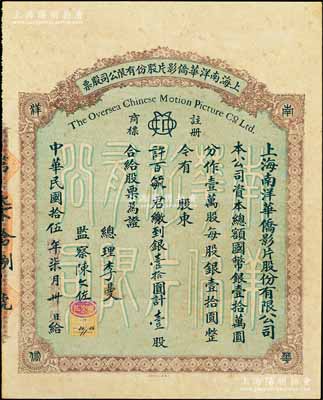 上海陽明拍賣
上海南洋華僑影片股份有限公司股票
南
洋
The Oversea Chinese Motion Picture Co Ltd.
註冊
商標
上海南洋華僑影片股份有限公司
本公司資本總額國幣銀壹拾萬圓
分作壹萬股每股銀壹拾圓整
今有 股東
許百毓君繳到銀壹拾圓計壹股
合給股票為證
總理李曼
監察陳仁佐
中華民國拾伍年柒月卅日給
華
僑